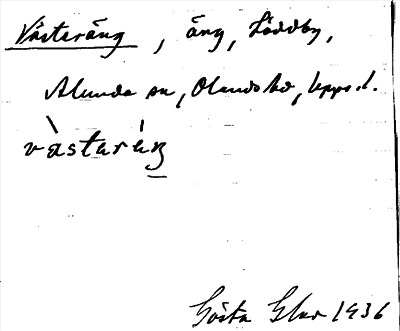 Västeräng, äng, Löddby,
Alunda sn, Olands hd, Upps. l.
vàstaráŋ
Gösta Glas 1936